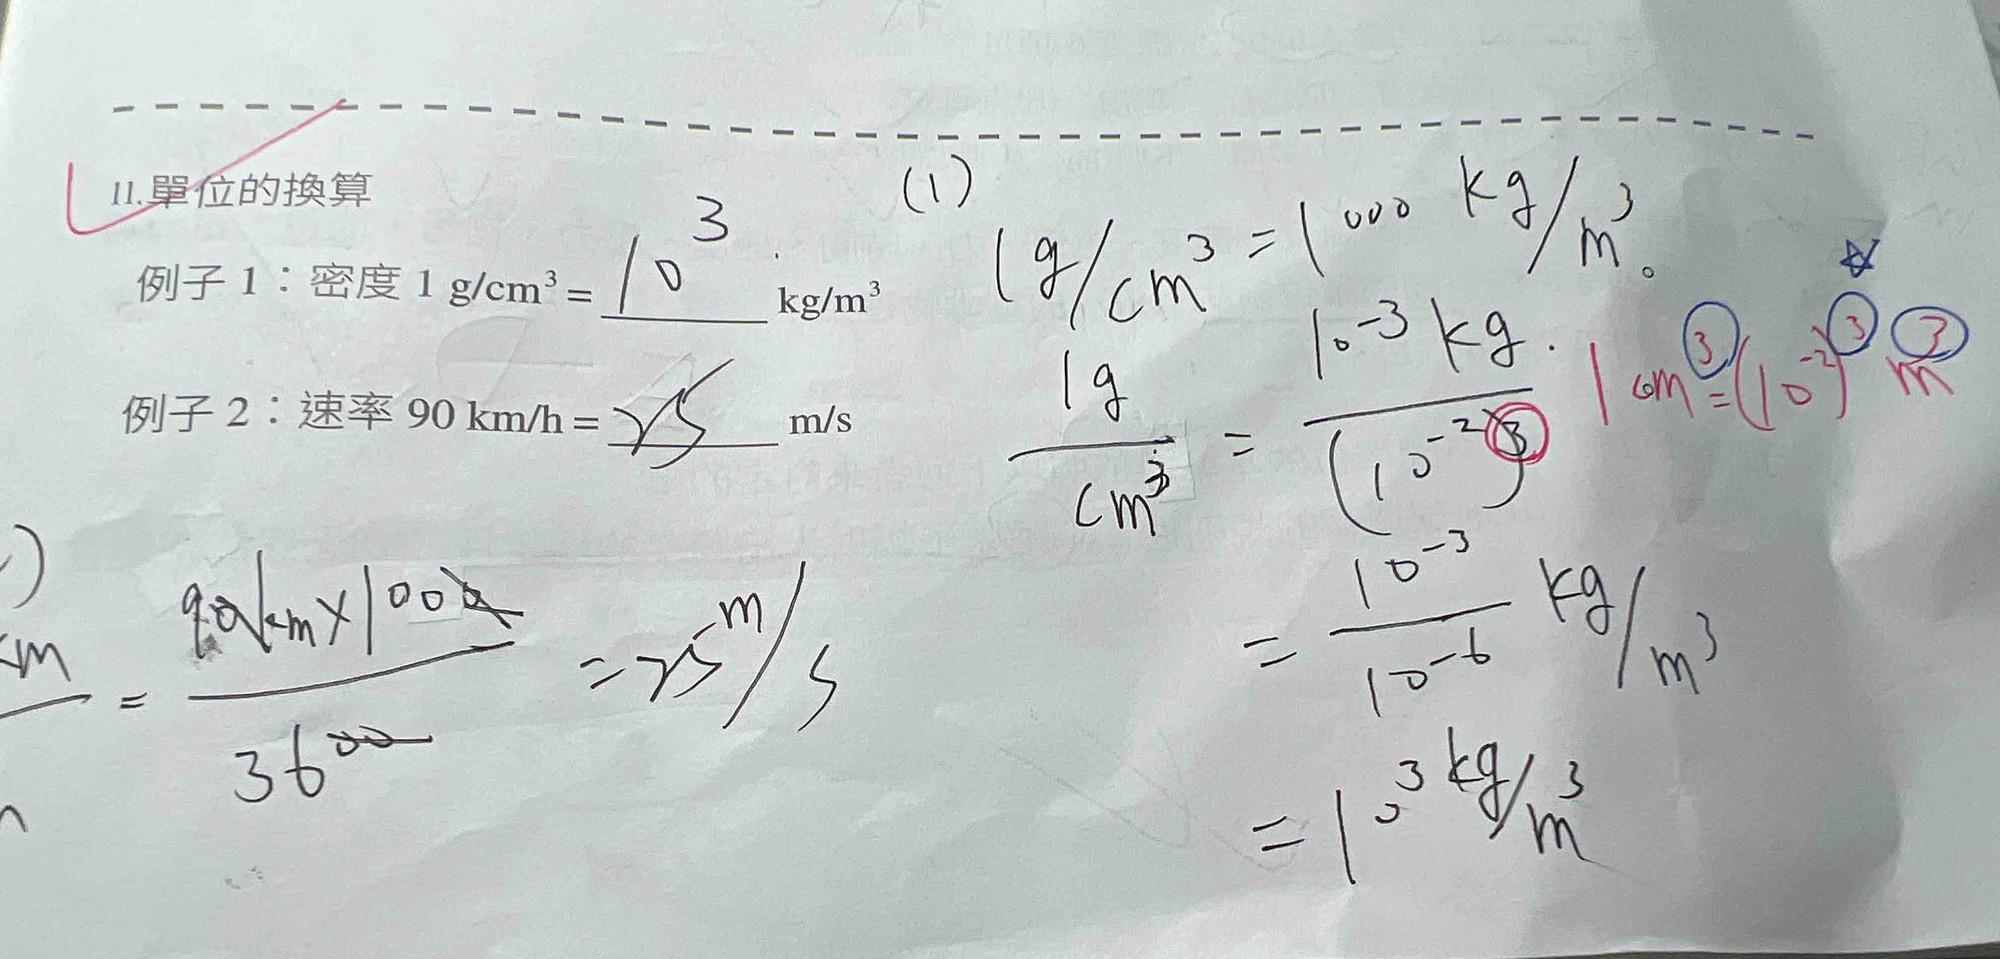 11.單位的換算
例子 1：密度 1 g/cm³ = 10³ kg/m³
例子 2：速率 90 km/h = 25 m/s
(1)
1g/cm³ = 1000 kg/m³。
1g/cm³ = 10⁻³ kg/(10⁻²)³
1cm³ = (10⁻²)³ m³
= 10⁻³/10⁻⁶ kg/m³
= 10³ kg/m³
)
km
= 90km×1000/3600 = 25 m/s